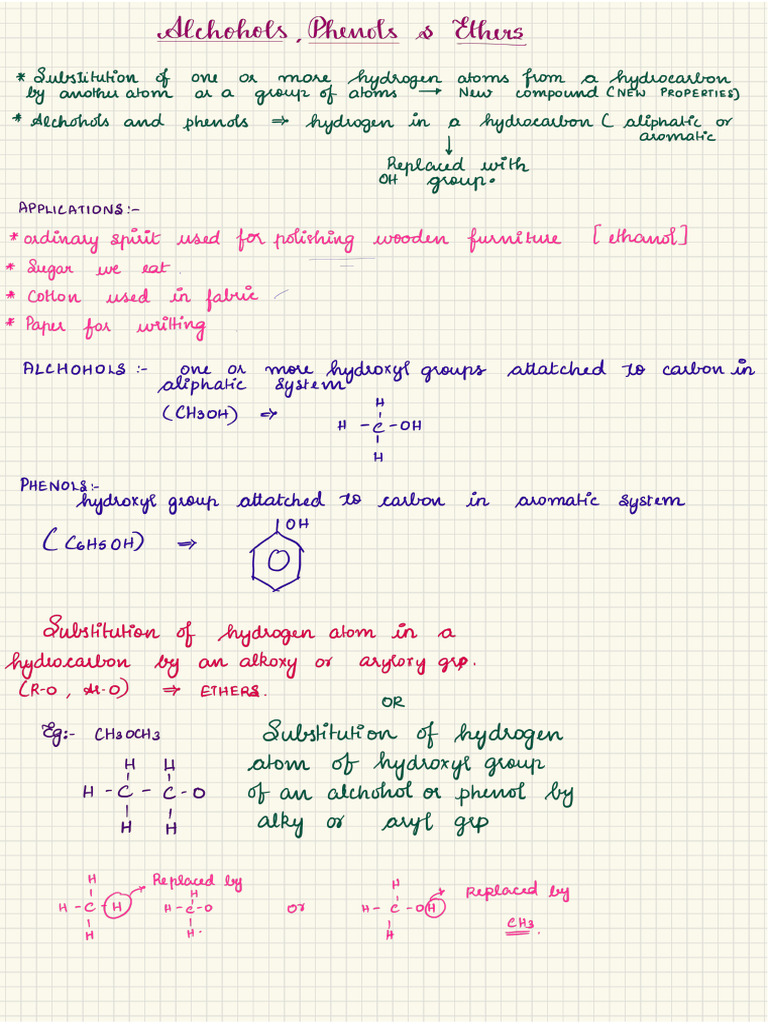 Alchohols, Phenols & Ethers
* Substitution of one or more hydrogen atoms from a hydrocarbon
by another atom or a group of atoms → New compound (NEW PROPERTIES)
* Alchohols and phenols ⇒ hydrogen in a hydrocarbon ( aliphatic or
aromatic
↓
Replaced with
OH group.
APPLICATIONS:-
* ordinary spirit used for polishing wooden furniture [ethanol]
* Sugar we eat.
* Cotton used in fabric
* Paper for writting
ALCHOHOLS :- one or more hydroxyl groups attatched to carbon in
aliphatic system
(CH3OH) ⇒
H
H - C - OH
H
PHENOLS:-
hydroxyl group attatched to carbon in aromatic system
OH
(C6H5OH) ⇒
Substitution of hydrogen atom in a
hydrocarbon by an alkoxy or aryloxy grp.
(R-O, Ar-O) ⇒ ETHERS.
OR
Eg:- CH3OCH3
Substitution of hydrogen
atom of hydroxyl group
of an alchohol or phenol by
alky or aryl grp
H H
H - C - C - O
H H
H
H - C - H
H
Replaced by
H
H - C - O
H.
or
H
H - C - OH
H
Replaced by
CH3.